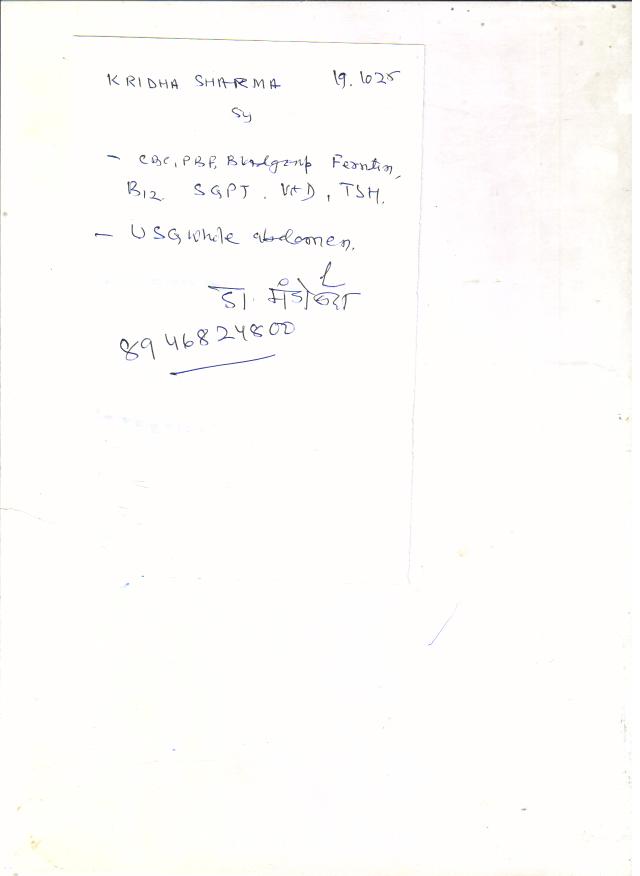 KRIDHA SHARMA 19.1025
5y
- CBC, PBF, Bloodgroup Ferritin,
B12. SGPT. Vit D, TSH.
- USG whole abdomen.
डा. मंडोवरा
8946824800